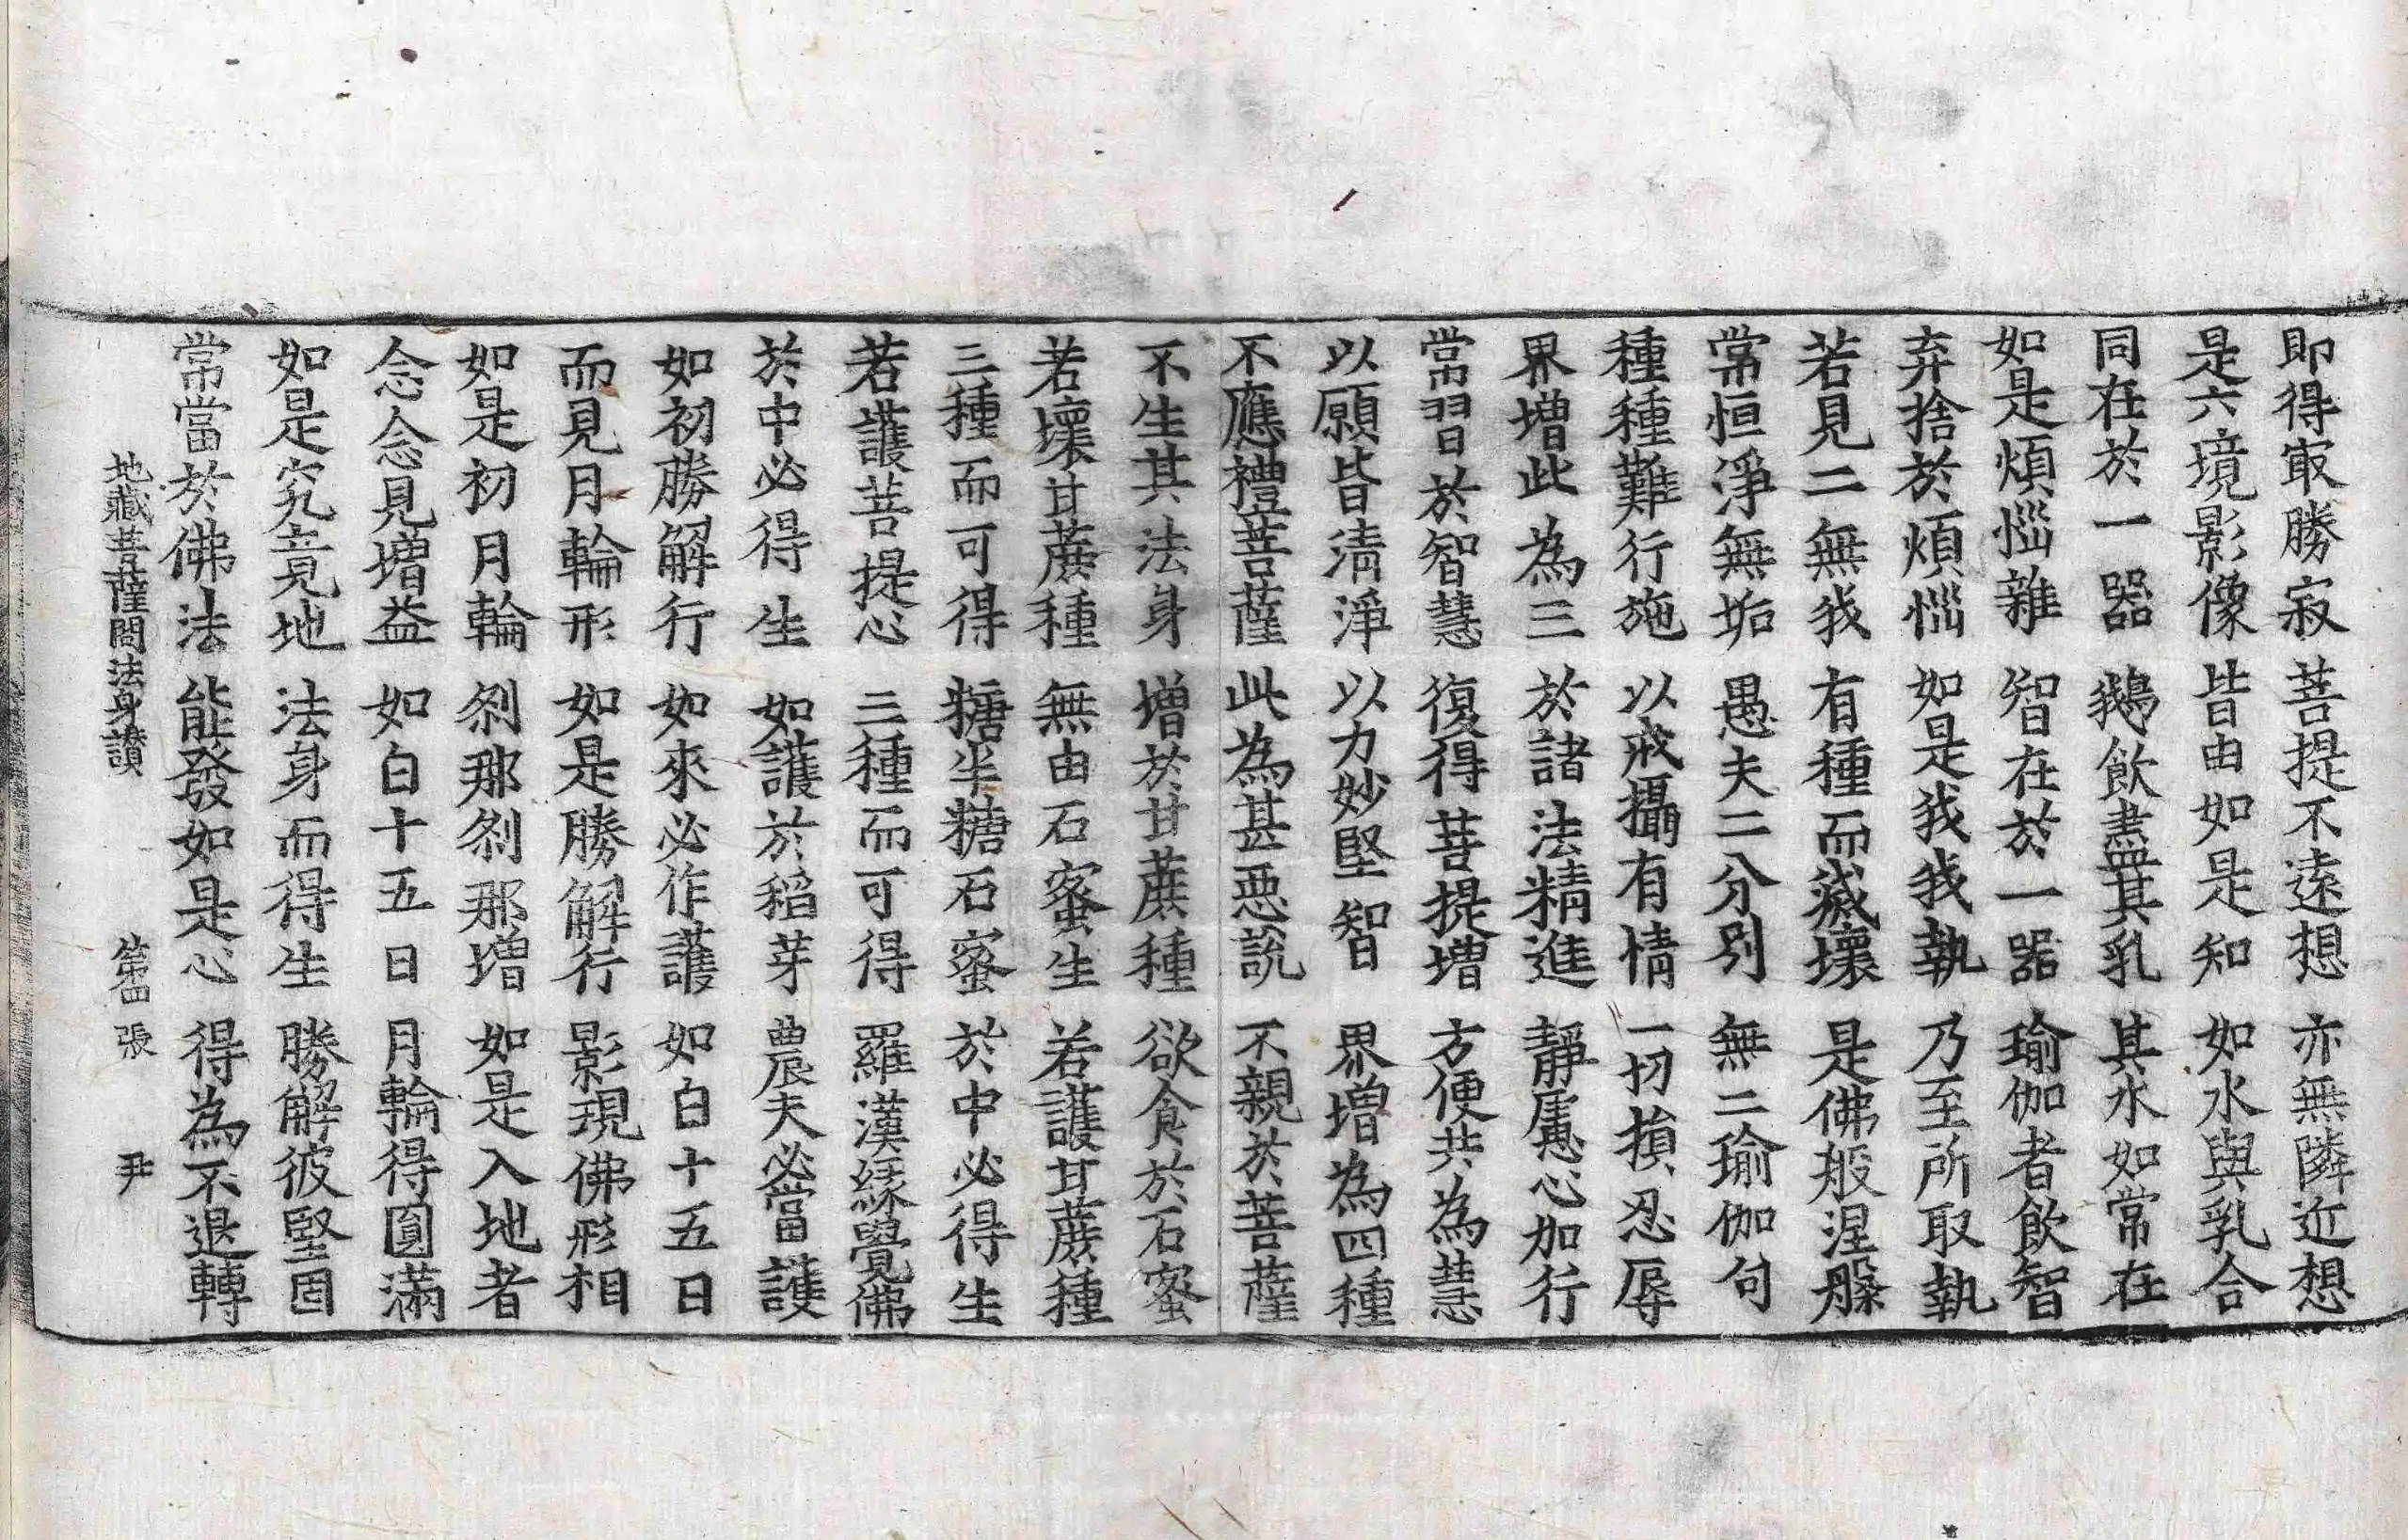 即得㝡勝寂 菩提不遠想 亦無隣近想
是六境影像 皆由如是知 如水與乳合
同在於一器 鵝飲盡其乳 其水如常在
如是煩惱雜 智在於一器 瑜伽者飲智
弃捨於煩惱 如是我我執 乃至所取執
若見二無我 有種而滅壞 是佛般涅槃
常恒淨無垢 愚夫二分別 無二瑜伽句
種種難行施 以戒攝有情 一切損忍辱
界增此為三 於諸法精進 靜慮心加行
常習於智慧 復得菩提增 方便共為慧
以願皆清淨 以力妙堅智 界增為四種
不應禮菩薩 此為甚惡說 不親於菩薩
不生其法身 增於甘蔗種 欲食於石蜜
若壞甘蔗種 無由石蜜生 若護甘蔗種
三種而可得 糖半糖石蜜 於中必得生
若護菩提心 三種而可得 羅漢緣覺佛
於中必得生 如護於稻芽 農夫必當護
如初勝解行 如來必作護 如白十五日
而見月輪形 如是勝解行 影現佛形相
如是初月輪 剎那剎那增 如是入地者
念念見增益 如白十五日 月輪得圓滿
如是究竟地 法身而得生 勝解彼堅固
常當於佛法 能發如是心 得為不退轉
地藏菩薩問法身讚 第四張 尹